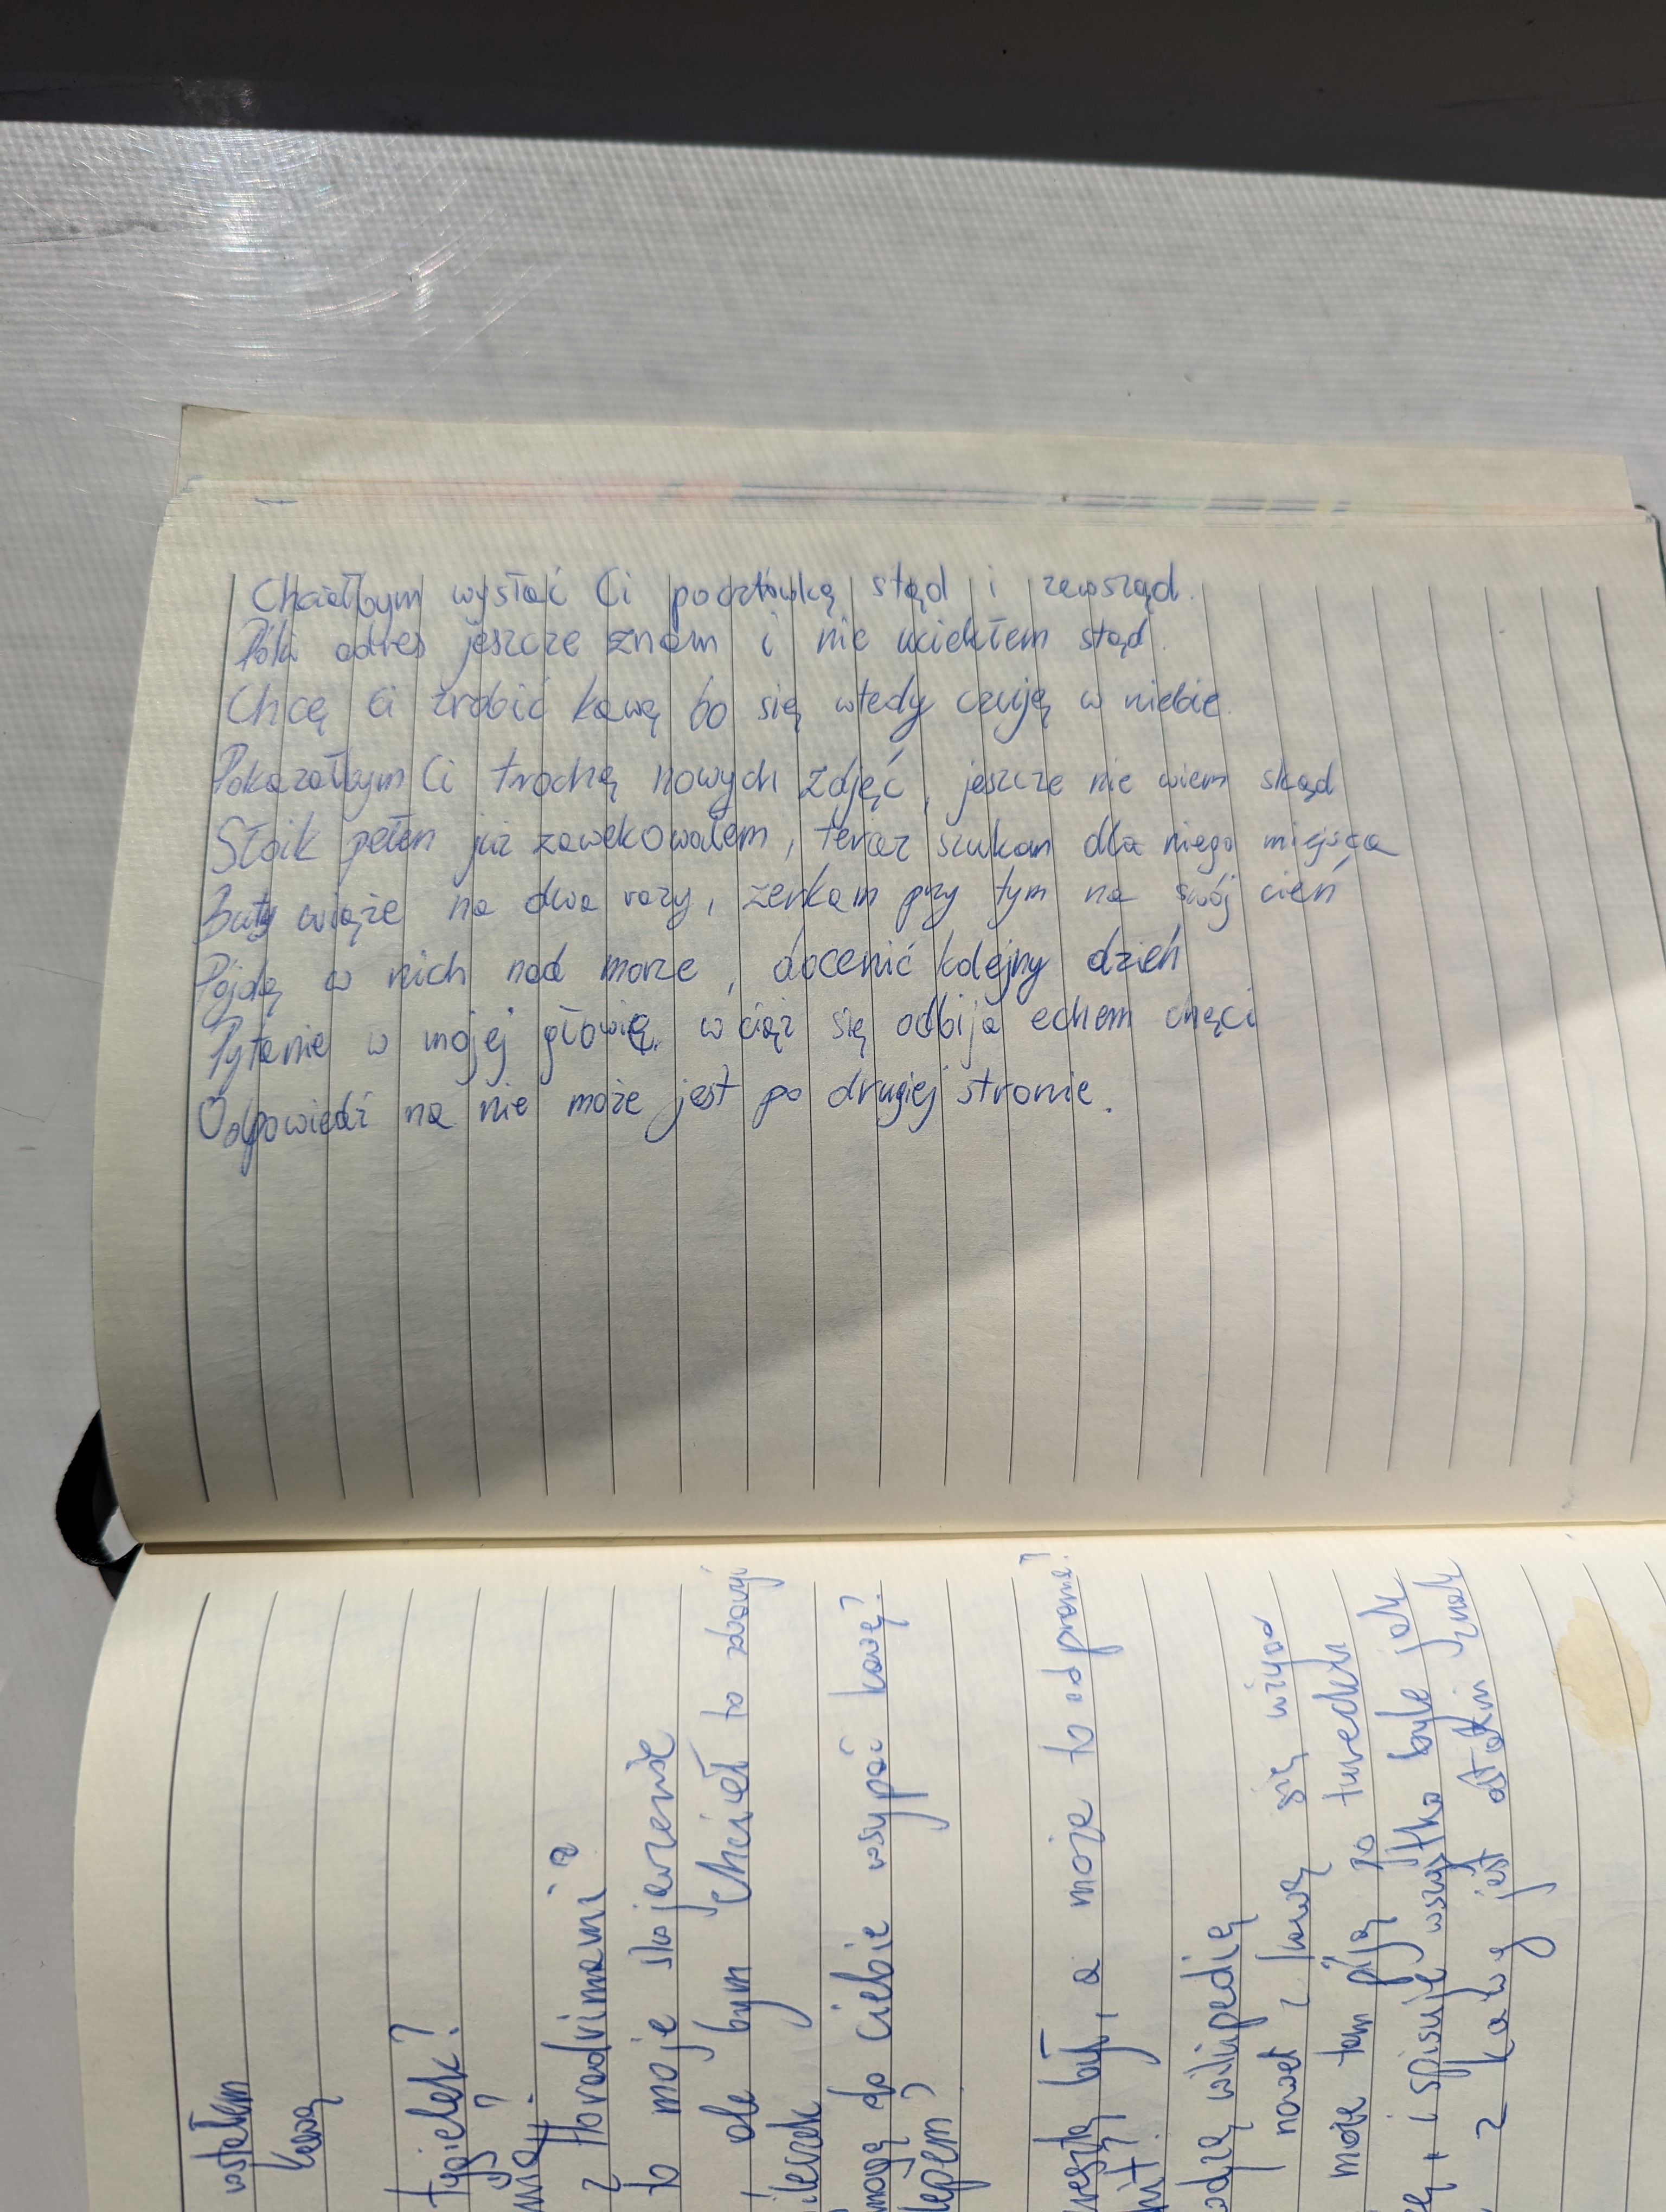 Chciałbym wysłać Ci pocztówkę stąd i zewsząd.
Póki adres jeszcze znam i nie uciekłem stąd.
Chcę Ci zrobić kawę bo się wtedy czuję w niebie.
Pokazałbym Ci trochę nowych zdjęć, jeszcze nie wiem skąd
Słoik pełen już zawekowałem, teraz szukam dla niego miejsca
Buty wiąże na dwa razy, zerkam przy tym na swój cień
Pójdę w nich nad morze, docenić kolejny dzień
Pytanie w mojej głowie wciąż się odbija echem chęci
Odpowiedź na nie może jest po drugiej stronie.
wstałem
kawą
tygielek?
z Horadrimami?
to moje skojarzenie
ale bym chciał to
mogę do ciebie wsypać kawę?
był, a może to od
wikipedię
nawet z kawą się
może tam piją po turecku
i spisuję wszystko byle jak
z kawy jest ostatni znak